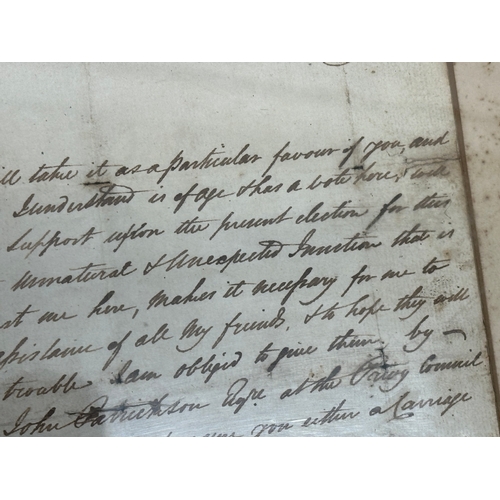 take it as a particular favour of you, and
I understand is of age & has a vote here, & will
support upon the present election for this
unnatural & Unexpected Junction that is
at me here, makes it necessary for me to
of all my friends, & to hope they will
trouble I am obliged to give them by —
John Patrickson Esqr. at the Privy Council
you either a Carriage